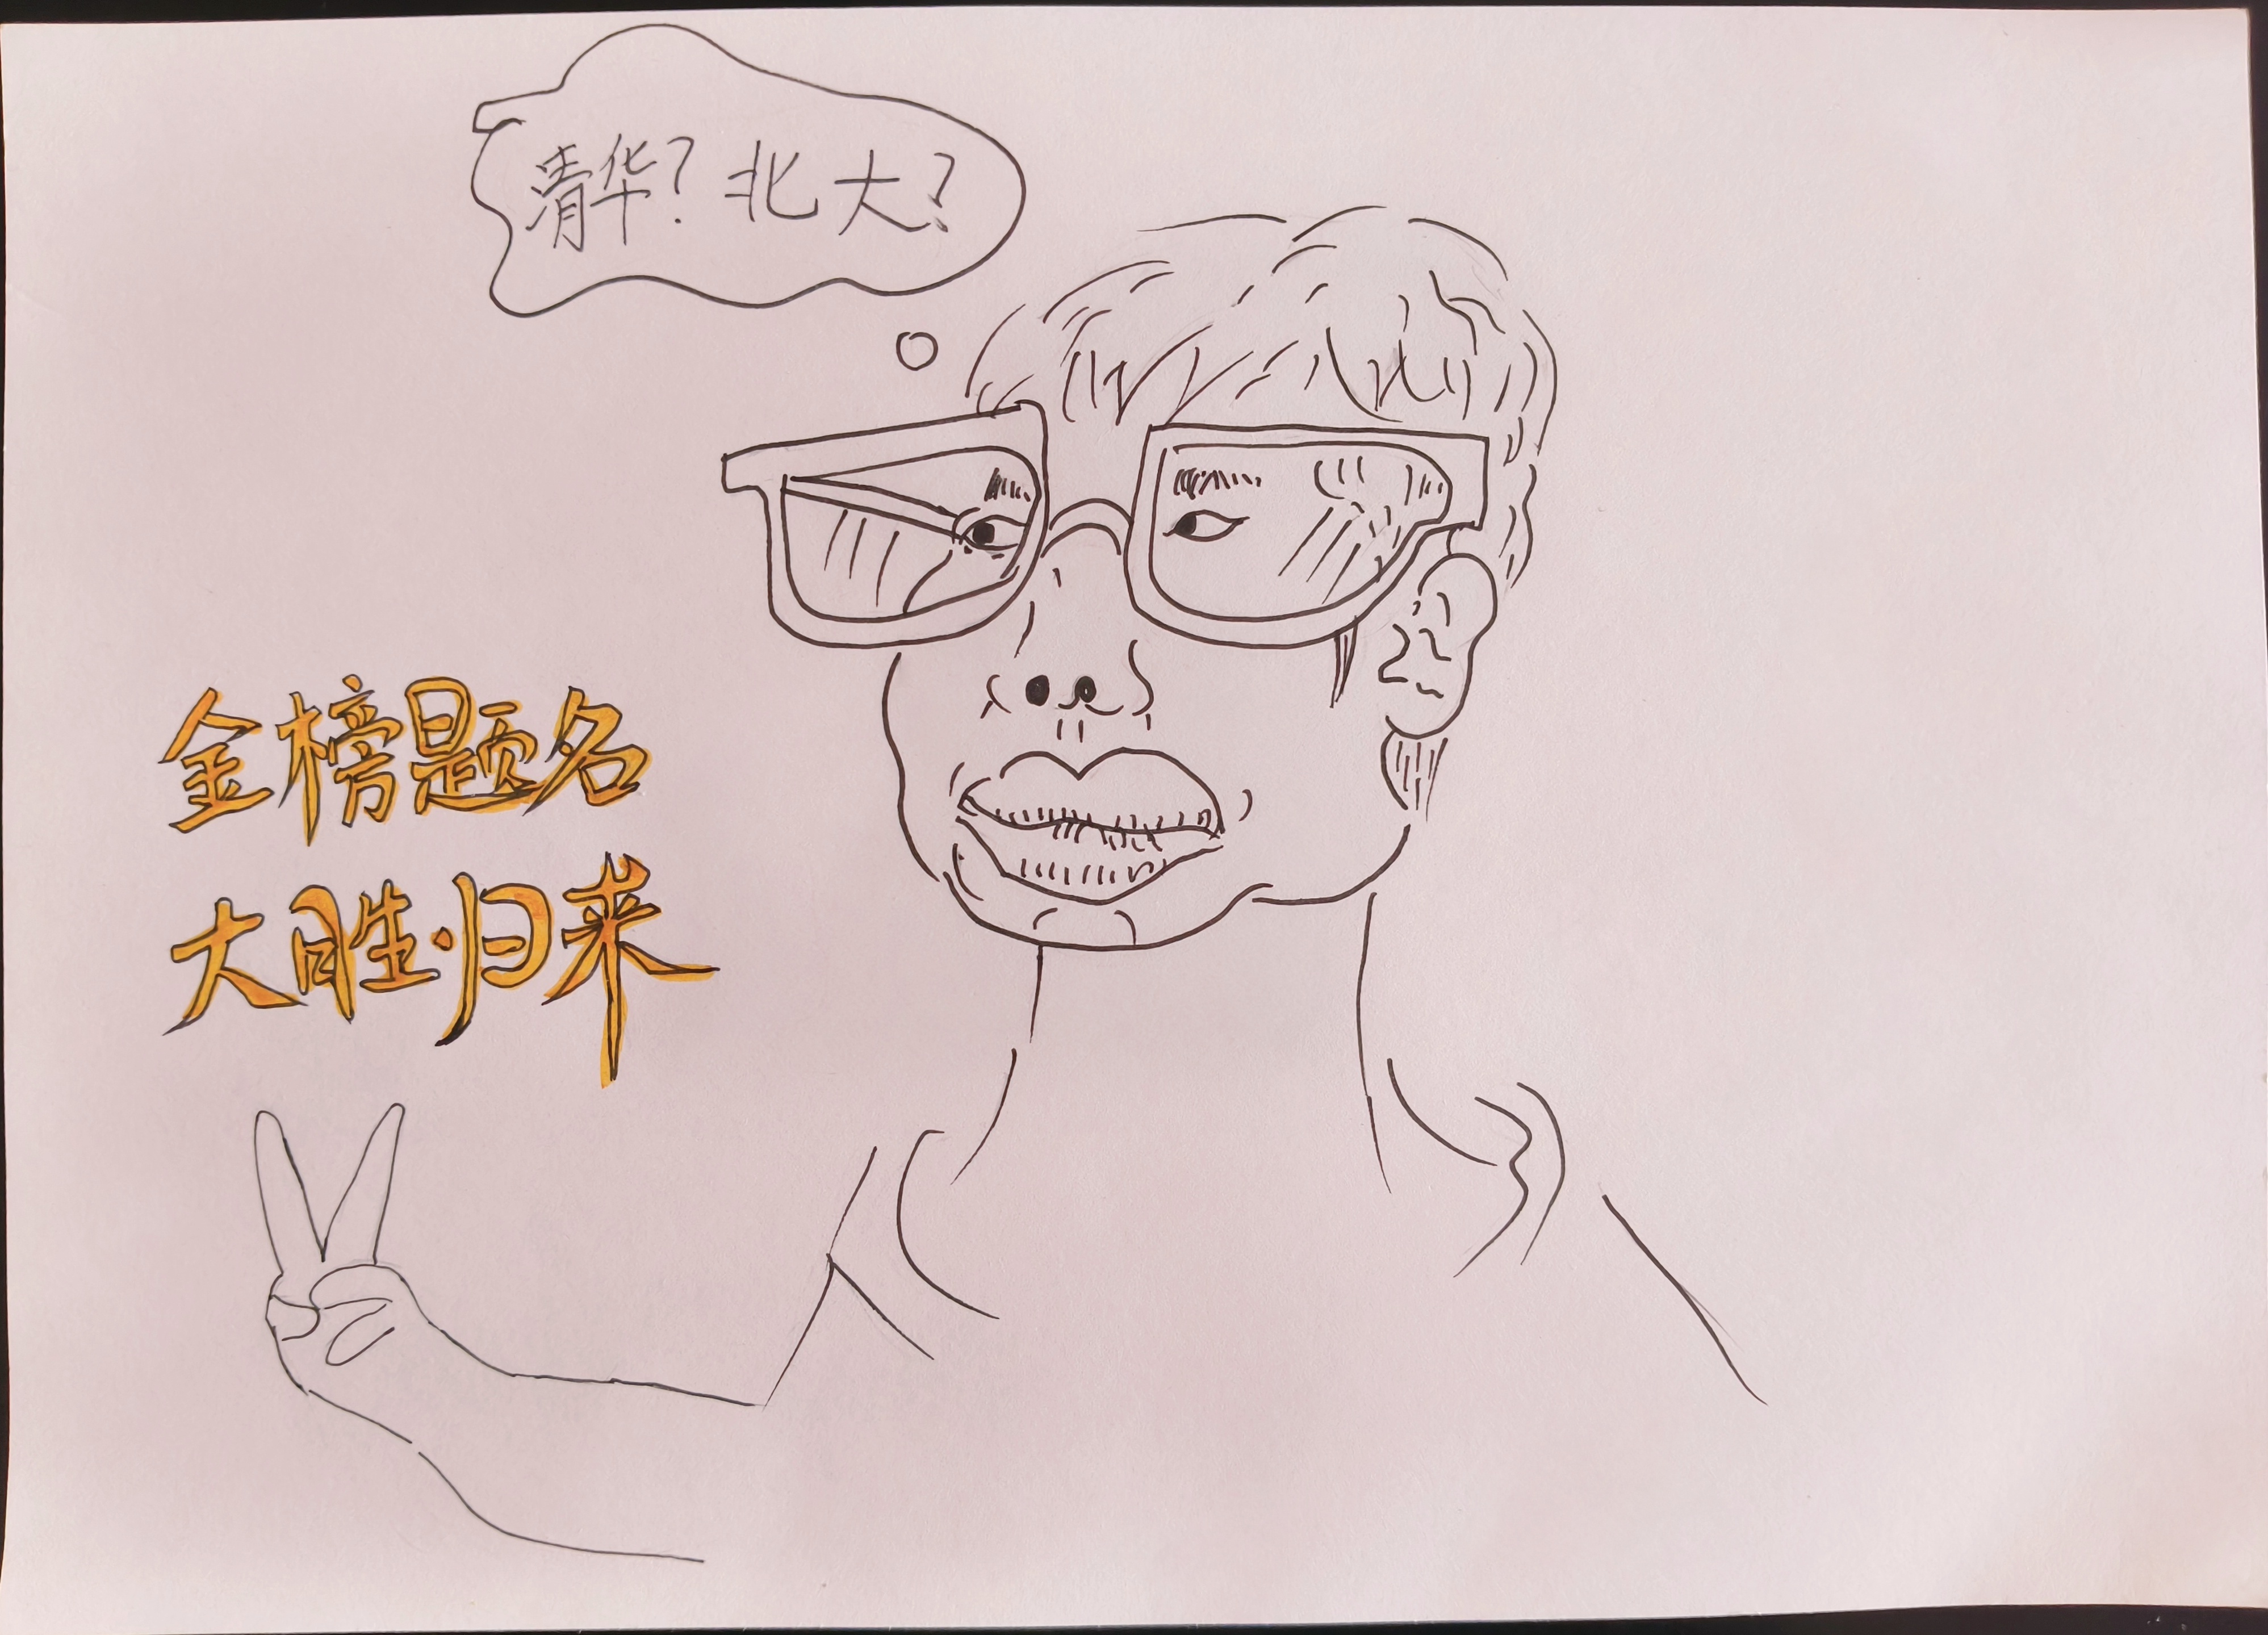 清华？北大？
金榜题名
大胜归来